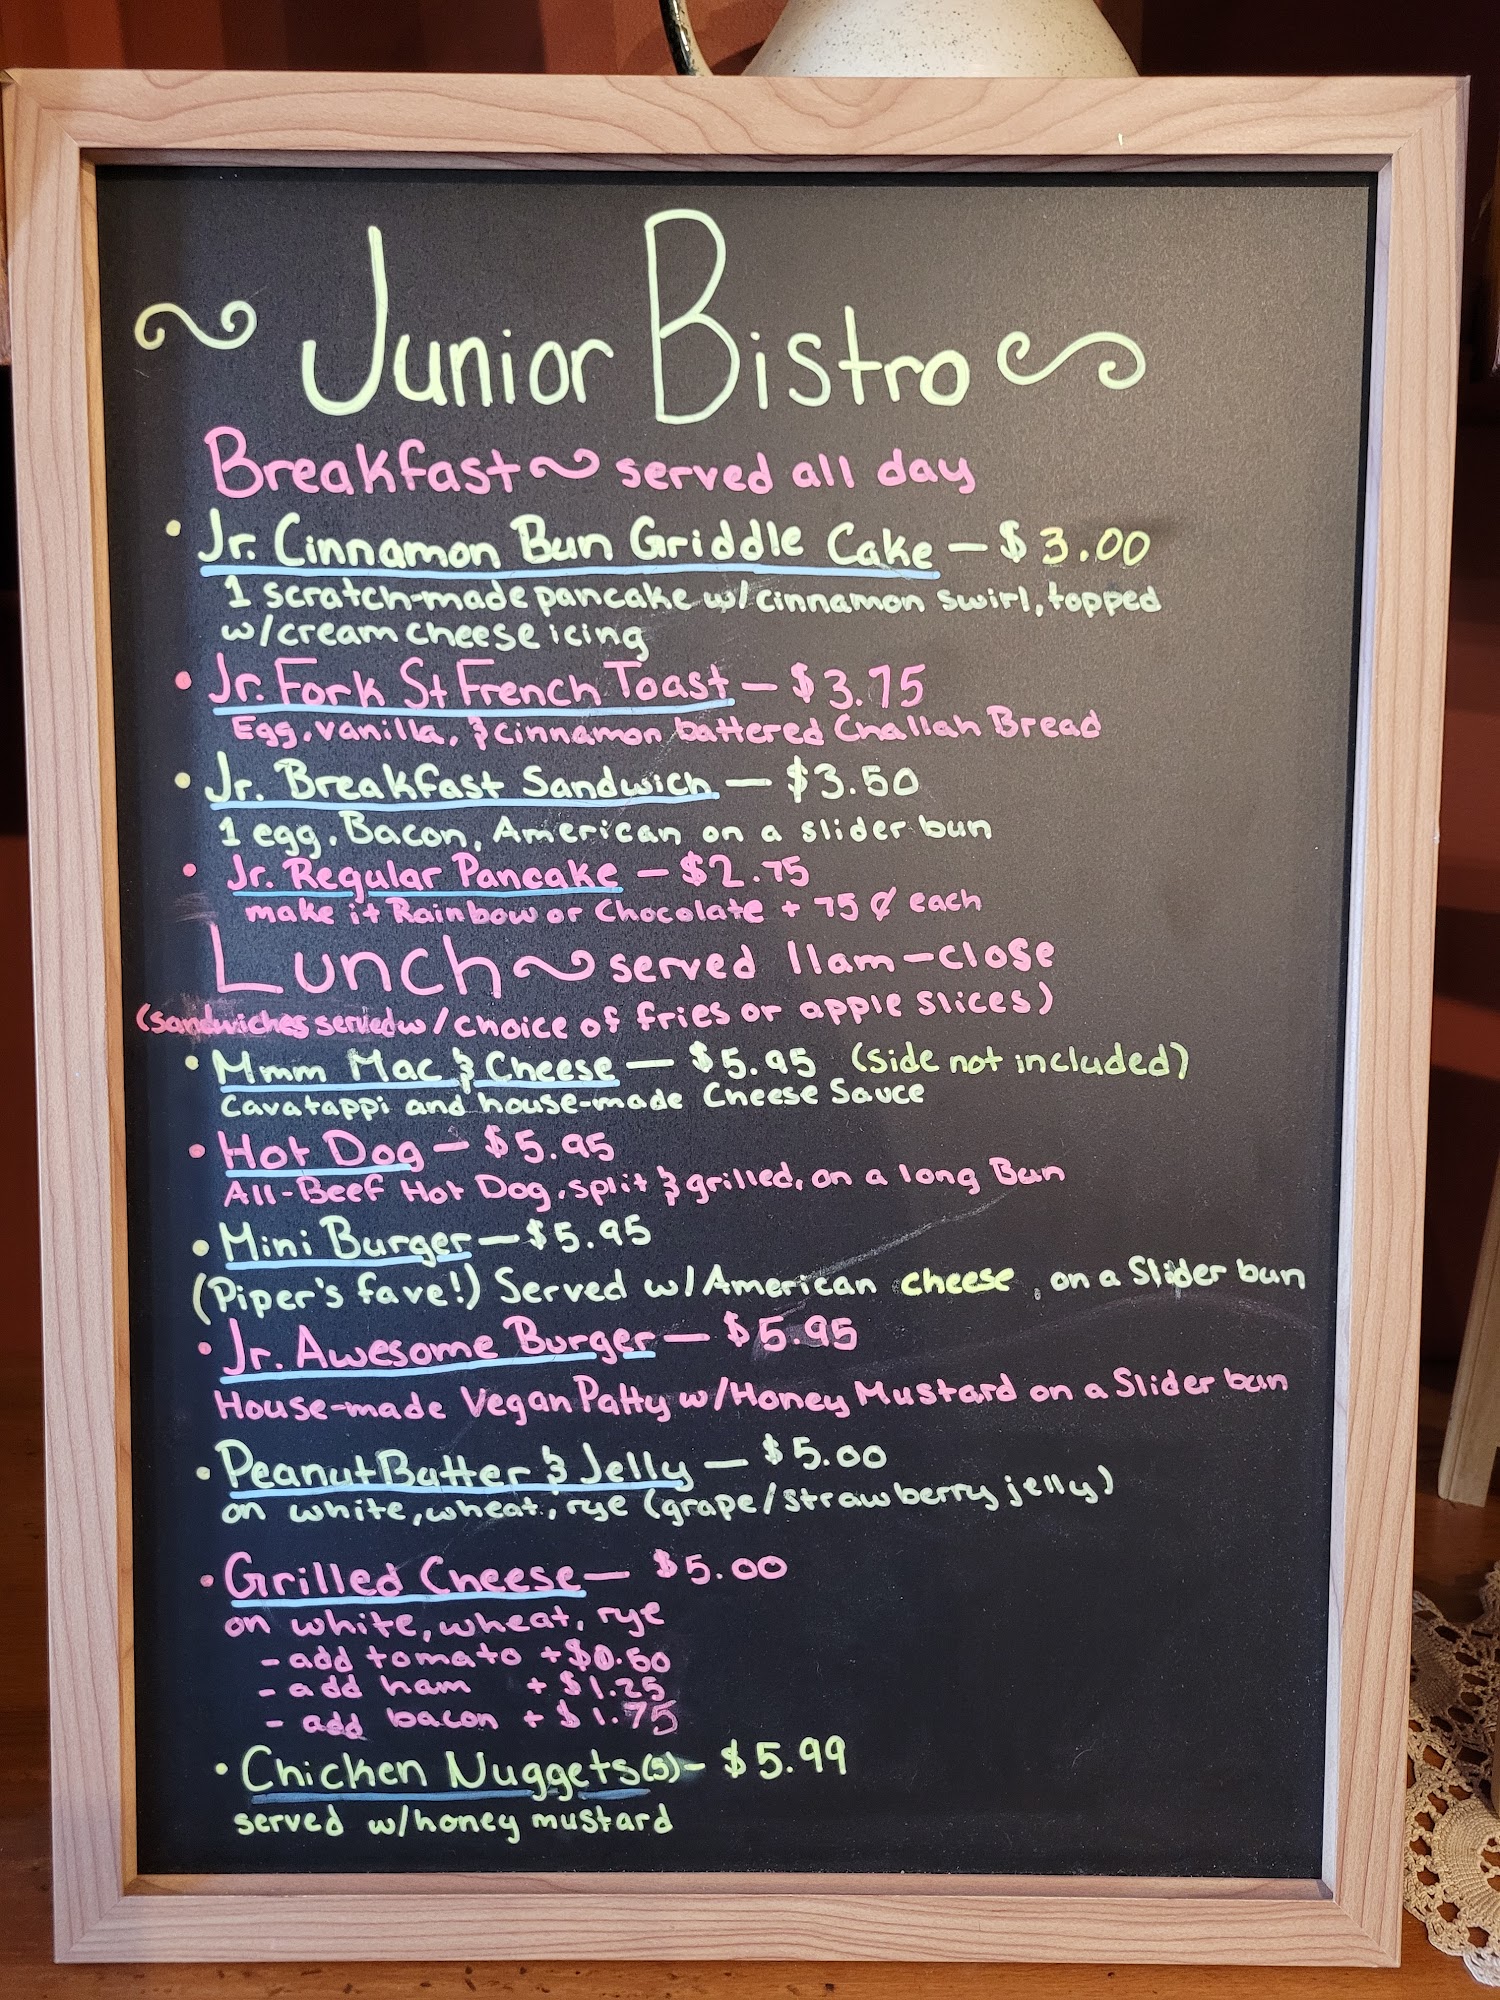 Junior Bistro
Breakfast ~ served all day
• Jr. Cinnamon Bun Griddle Cake - $3.00
1 scratch-made pancake w/ cinnamon swirl, topped
w/cream cheese icing
• Jr. Fork St French Toast - $3.75
Egg, vanilla, & cinnamon battered Challah Bread
• Jr. Breakfast Sandwich - $3.50
1 egg, Bacon, American on a slider bun
• Jr. Regular Pancake - $2.75
make it Rainbow or Chocolate + 75¢ each
Lunch ~ served 11am-close
(sandwiches served w/choice of fries or apple slices)
• Mmm Mac & Cheese - $5.95 (side not included)
Cavatappi and house-made Cheese Sauce
• Hot Dog - $5.95
All-Beef Hot Dog, split & grilled, on a long Bun
• Mini Burger - $5.95
(Piper's fave!) Served w/American cheese, on a Slider bun
• Jr. Awesome Burger - $5.95
House-made Vegan Patty w/Honey Mustard on a Slider bun
• Peanut Butter & Jelly - $5.00
on white, wheat, rye (grape/strawberry jelly)
• Grilled Cheese - $5.00
on white, wheat, rye
- add tomato + $0.50
- add ham + $1.25
- add bacon + $1.75
• Chicken Nuggets(5) - $5.99
served w/honey mustard